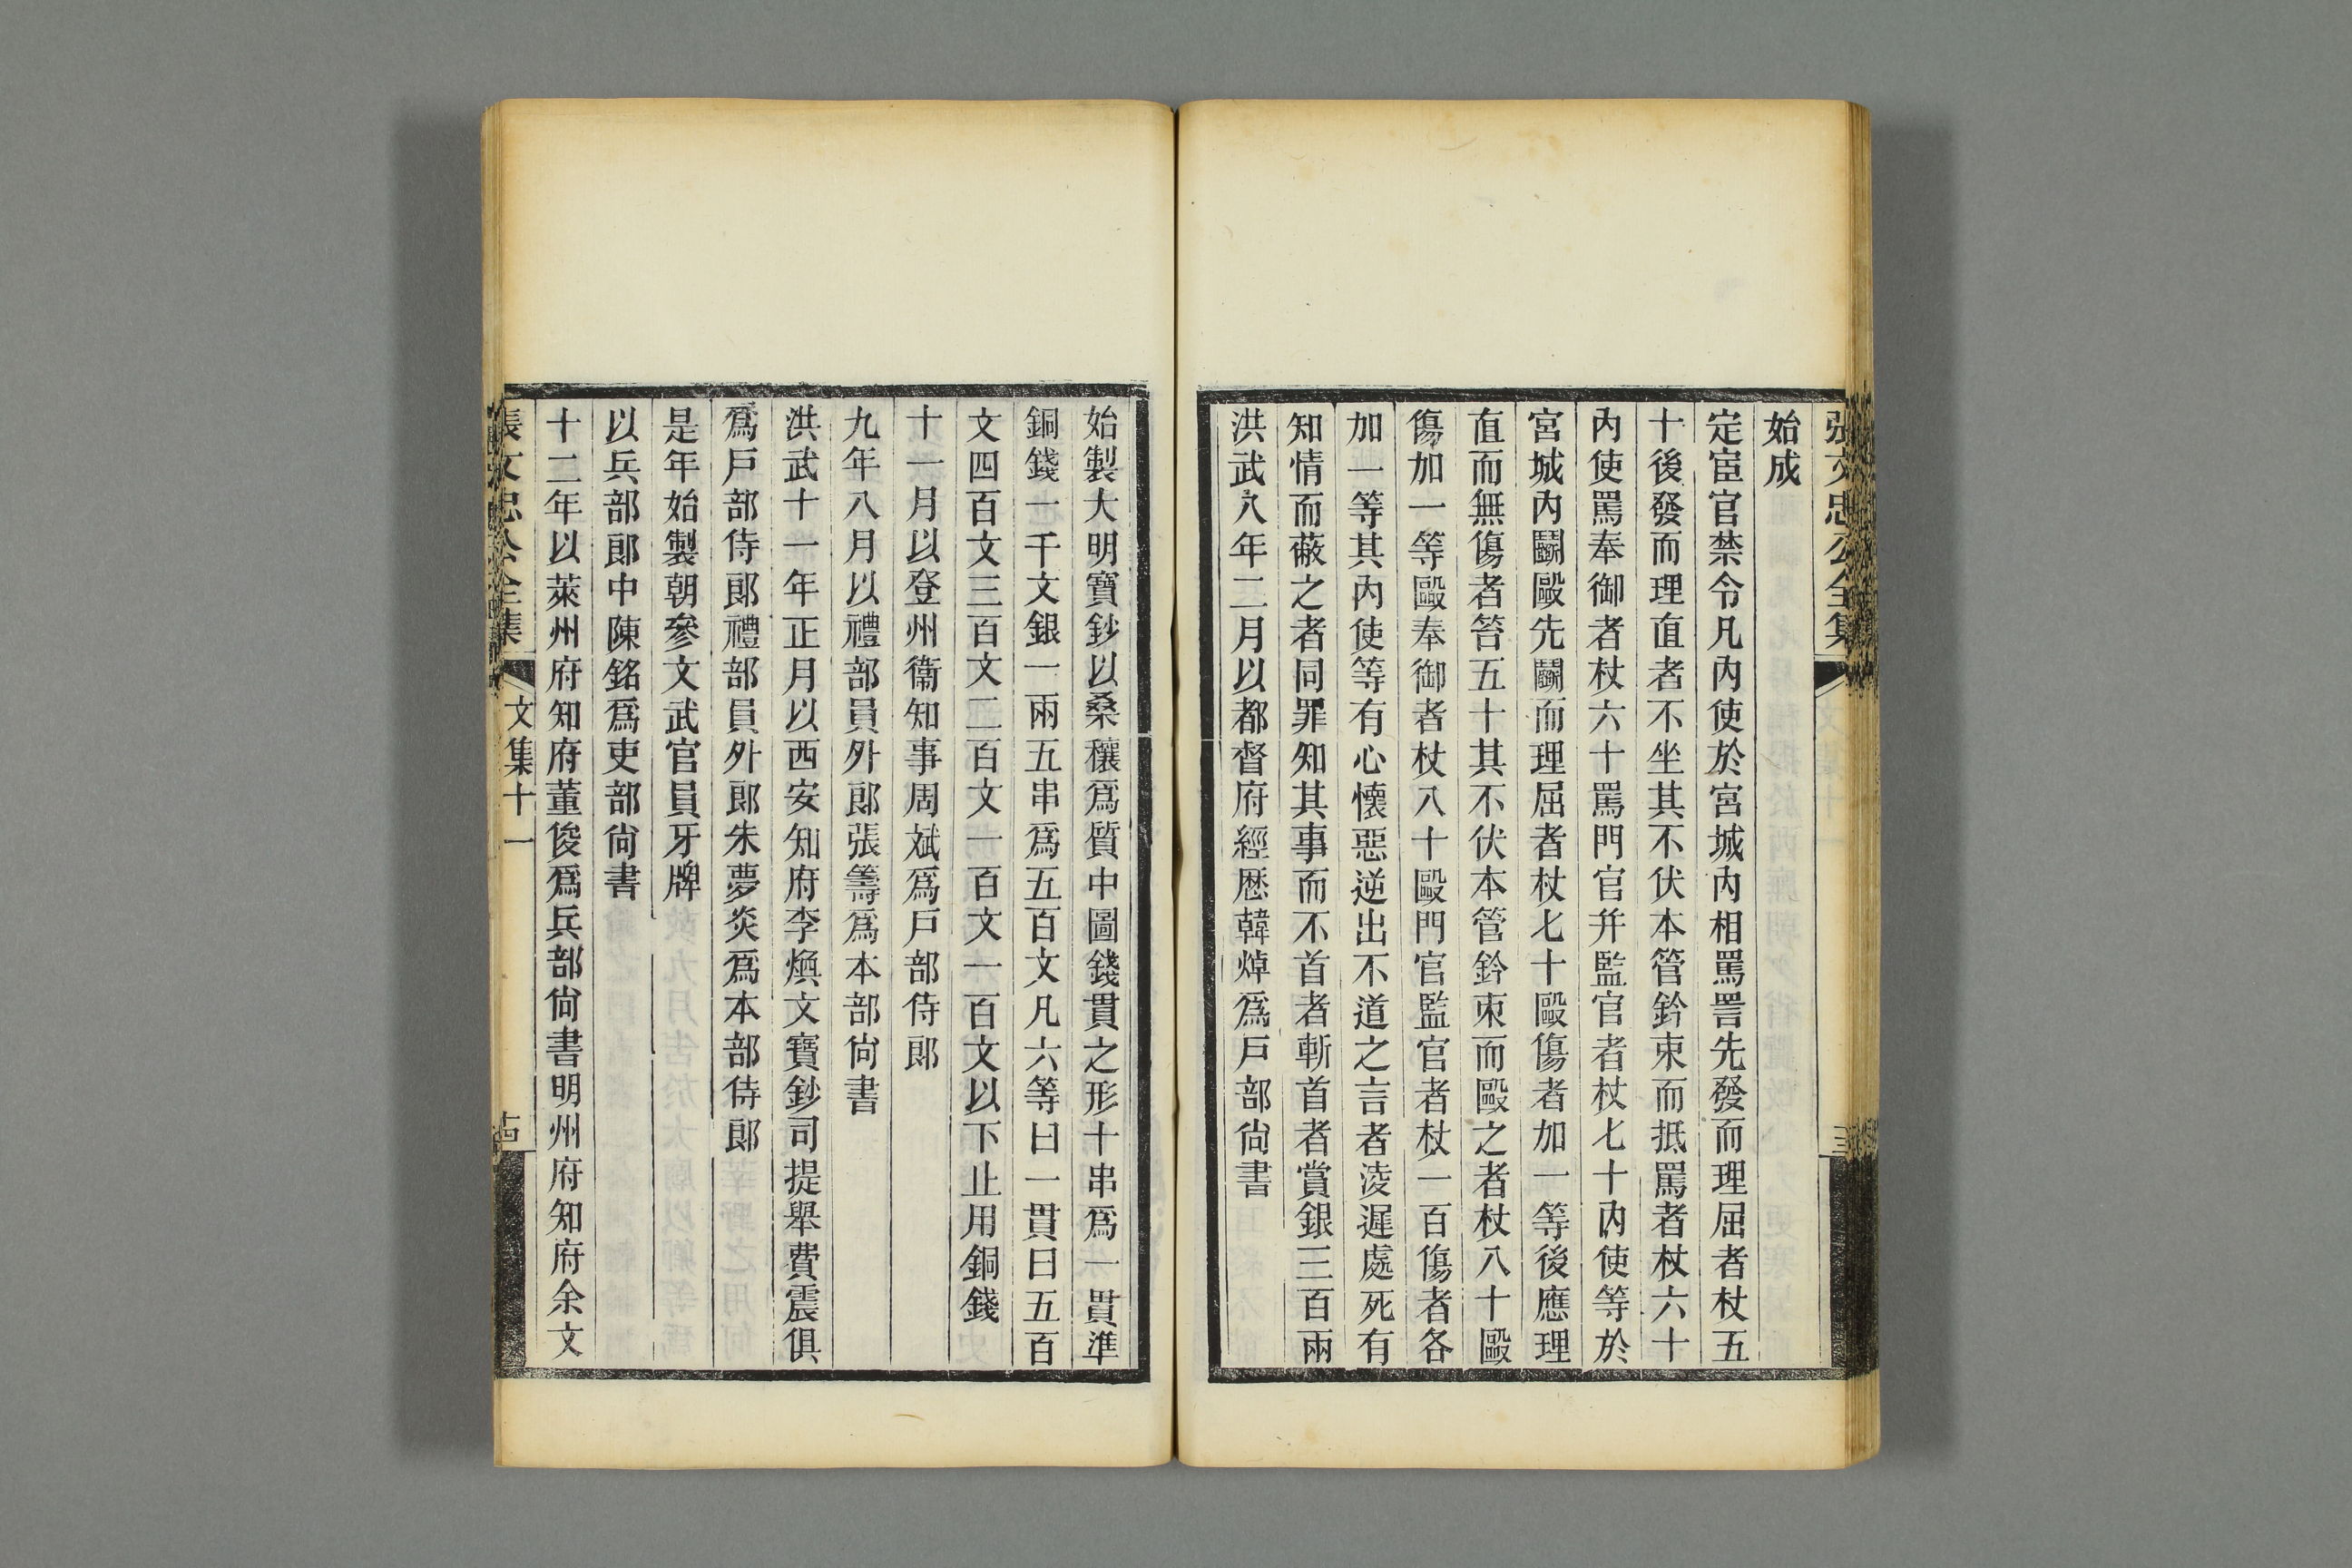 張文忠公全集
始成
定宦官禁令凡內使於宮城內相罵詈先發而理屈者杖五
十後發而理直者不坐其不伏本管鈐束而抵罵者杖六十
內使罵奉御者杖六十罵門官幷監官者杖七十內使等於
宮城內鬬毆先鬬而理屈者杖七十毆傷者加一等後應理
直而無傷者笞五十其不伏本管鈐束而毆之者杖八十毆
傷加一等毆奉御者杖八十毆門官監官者杖一百傷者各
加一等其內使等有心懷惡逆出不道之言者淩遲處死有
知情而蔽之者同罪知其事而不首者斬首者賞銀三百兩
洪武八年二月以都督府經歷韓焯爲戶部尙書
始製大明寶鈔以桑穰爲質中圖錢貫之形十串爲一貫準
銅錢一千文銀一兩五串爲五百文凡六等曰一貫曰五百
文四百文三百文二百文一百文一百文以下止用銅錢
十一月以登州衞知事周斌爲戶部侍郞
九年八月以禮部員外郞張籌爲本部尙書
洪武十一年正月以西安知府李煥文寶鈔司提舉費震俱
爲戶部侍郞禮部員外郞朱夢炎爲本部侍郞
是年始製朝參文武官員牙牌
以兵部郞中陳銘爲吏部尙書
十二年以萊州府知府董俊爲兵部尙書明州府知府余文
張文忠公全集 文集十一 十四